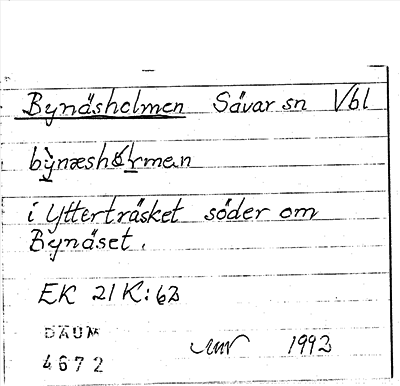 Bynäsholmen Sävar sn Vbl
i Ytterträsket söder om
Bynäset.
EK 21 K: 6
DAUM
4672
1992